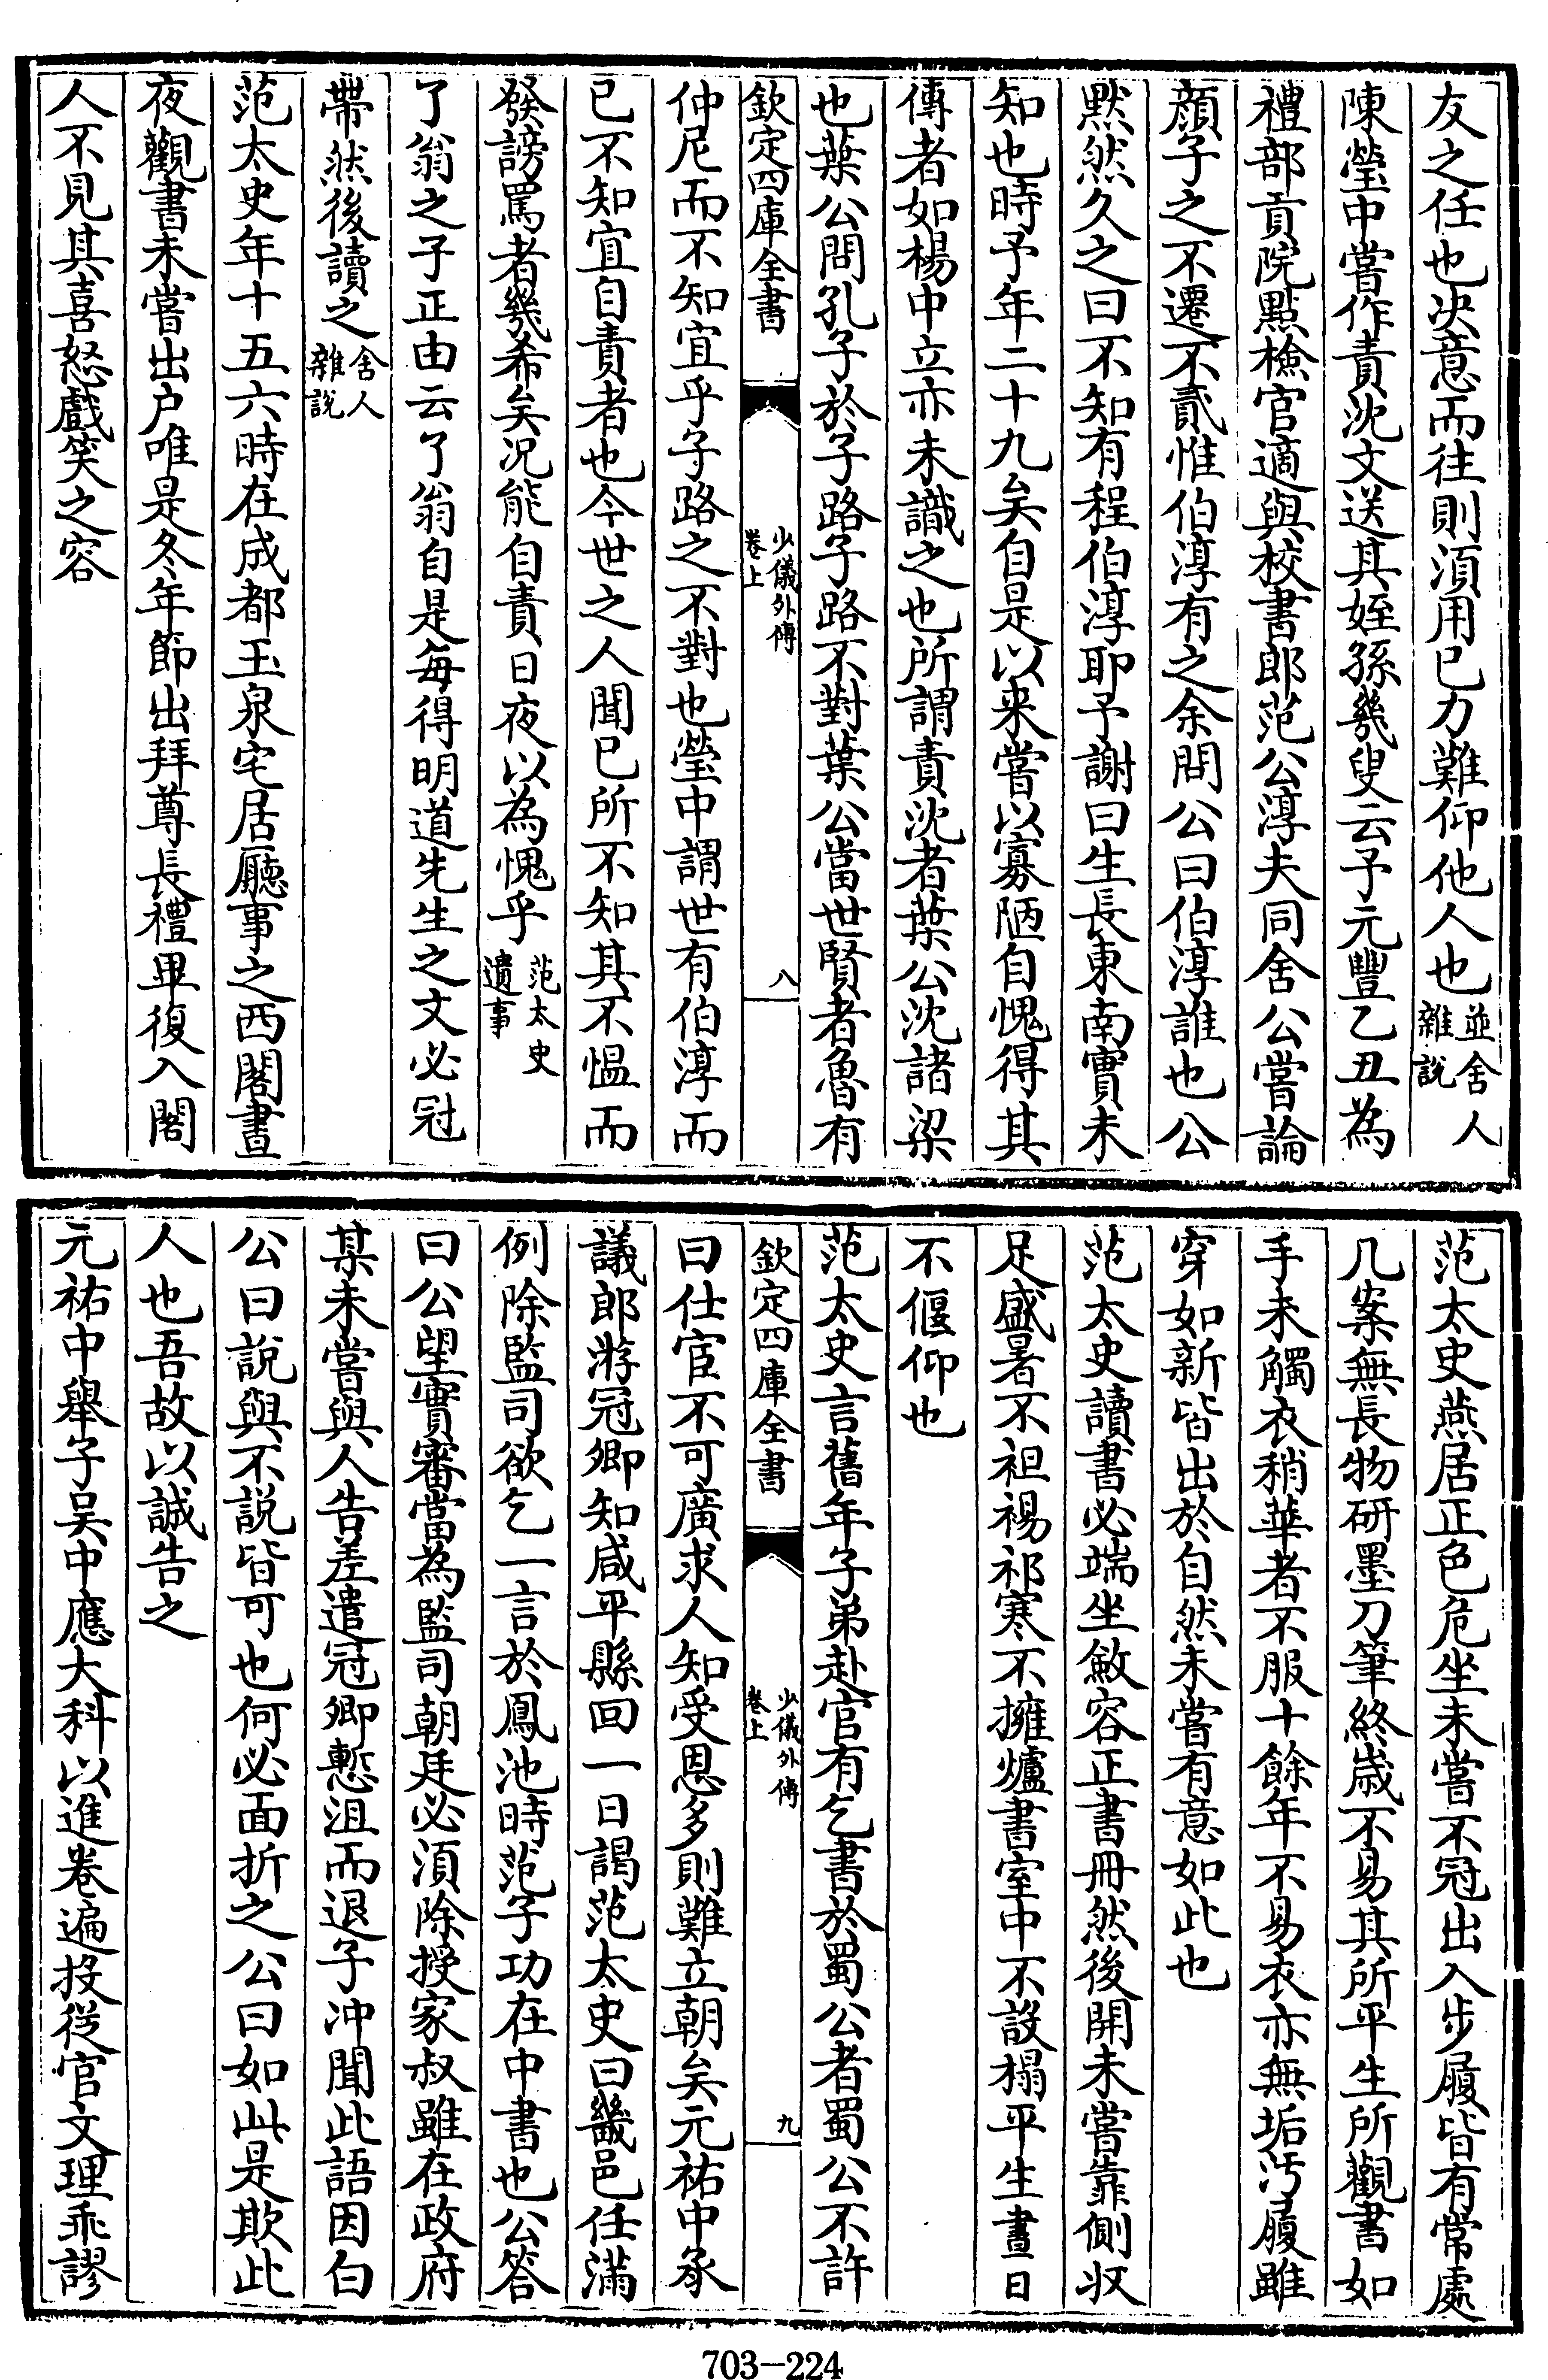 友之任也决意而往則須用已力難仰他人也並舍人雜說
陳瑩中嘗作責沈文送其姪孫幾叟云予元豐乙丑為
禮部貢院點檢官適與校書郎范公淳夫同舍公嘗論
顔子之不遷不貳惟伯淳有之余問公曰伯淳誰也公
黙然久之曰不知有程伯淳耶予謝曰生長東南實未
知也時予年二十九矣自是以来嘗以寡陋自愧得其
傳者如楊中立亦未識之也所謂責沈者葉公沈諸梁
也葉公問孔子於子路子路不對葉公當世賢者魯有
欽定四庫全書 少儀外傳卷上 八
仲尼而不知宜乎子路之不對也瑩中謂世有伯淳而
已不知宜自責者也今世之人聞已所不知其不愠而
發謗罵者幾希矣况能自責日夜以為愧乎范太史遺事
了翁之子正由云了翁自是每得明道先生之文必冠
帶然後讀之舍人雜說
范太史年十五六時在成都玉泉宅居廳事之西閣晝
夜觀書未嘗出户唯是冬年節出拜尊長禮畢復入閣
人不見其喜怒戲笑之容
范太史燕居正色危坐未嘗不冠出入步履皆有常處
几案無長物研墨刀筆終嵗不易其所平生所觀書如
手未觸衣稍華者不服十餘年不易衣亦無垢汚履雖
穿如新皆出於自然未嘗有意如此也
范太史讀書必端坐斂容正書冊然後開未嘗靠側収
足盛暑不袒裼祁寒不擁爐書室中不設榻平生晝日
不偃仰也
范太史言舊年子弟赴官有乞書於蜀公者蜀公不許
欽定四庫全書 少儀外傳卷上 九
曰仕宦不可廣求人知受恩多則難立朝矣元祐中承
議郎游冠卿知咸平縣回一日謁范太史曰畿邑任滿
例除監司欲乞一言於鳳池時范子功在中書也公答
曰公望實審當為監司朝廷必須除授家叔雖在政府
某未嘗與人告差遣冠卿慙沮而退子冲聞此語因白
公曰說與不說皆可也何必面折之公曰如此是欺此
人也吾故以誠告之
元祐中舉子吴中應大科以進卷遍投從官文理乖謬
703-224